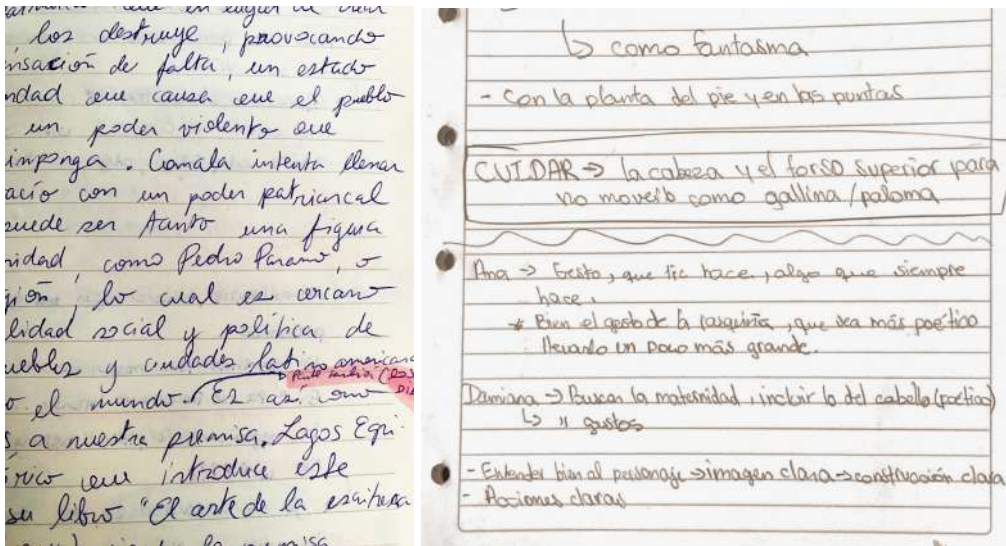 en lugar de
los destruye, provocando
nsación de falta, un estado
ndad que causa que el pueblo
un poder violento que
imponga. Comala intenta llenar
acío con un poder patriarcal
puede ser tanto una figura
ridad, como Pedro Páramo, o
gión, lo cual es cercano
lidad social y política de
ueblos y ciudades latinoamericana
o el mundo. Es así como
s a nuestra premisa. Lagos Egri
rico que introduce este
su libro "El arte de la escritura
la premisa
↳ como fantasma
- Con la planta del pie y en las puntas
CUIDAR → la cabeza y el torso superior para
no moverlo como gallina/paloma
Ana → Gesto, que tic hace, algo que siempre
hace.
* Bien el gesto de la cosquilla, que sea más poético
llevarlo un poco más grande.
Damiana → Buscar la maternidad, incluir lo del cabello (poético)
↳ " gustos
- Entender bien al personaje → imagen clara → construcción clara
- Acciones claras